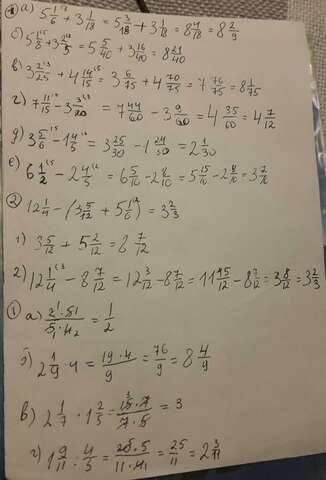 ① а) 5 1/6 + 3 1/18 = 5 3/18 + 3 1/18 = 8 4/18 = 8 2/9
б) 5 1/8 + 3 2/5 = 5 5/40 + 3 16/40 = 8 21/40
в) 3 2/25 + 4 14/15 = 3 6/75 + 4 70/75 = 7 76/75 = 8 1/75
г) 7 11/15 - 3 3/20 = 7 44/60 - 3 9/60 = 4 35/60 = 4 7/12
д) 3 5/6 - 1 4/5 = 3 25/30 - 1 24/30 = 2 1/30
е) 6 1/2 - 2 4/5 = 6 5/10 - 2 8/10 = 5 15/10 - 2 8/10 = 3 7/10
② 12 1/4 - (3 5/12 + 5 1/6) = 3 2/3
1) 3 5/12 + 5 2/12 = 8 7/12
2) 12 1/4 - 8 7/12 = 12 3/12 - 8 7/12 = 11 15/12 - 8 7/12 = 3 8/12 = 3 2/3
① а) = 1/2
б) 2 1/9 · 4 = 19·4/9 = 76/9 = 8 4/9
в) 2 1/7 · 1 2/5 = 15·7/7·5 = 3
г) 1 9/11 : 4/5 = 20·5/11·4 = 25/11 = 2 3/11